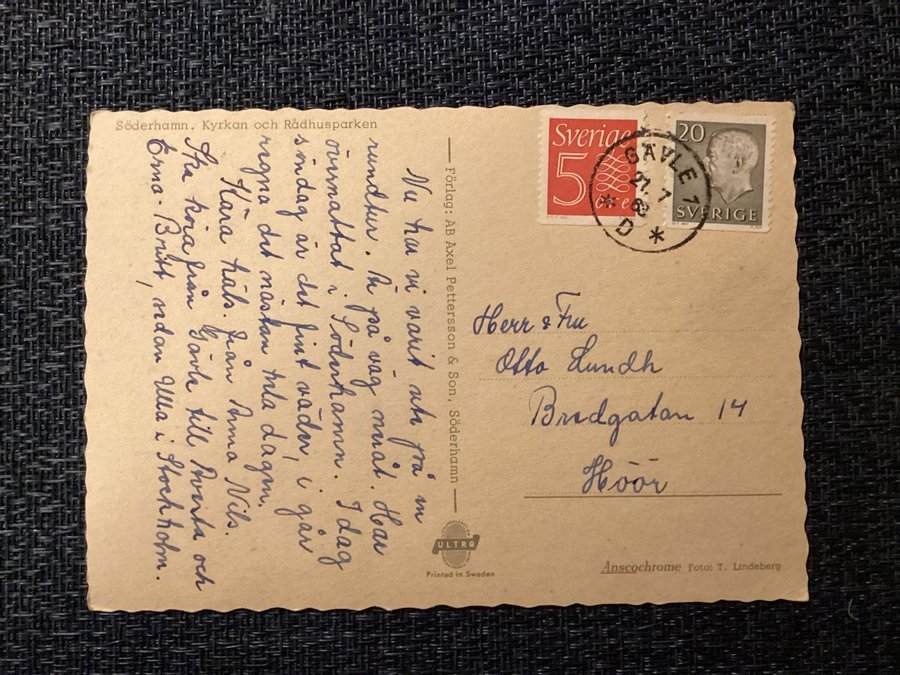 Söderhamn. Kyrkan och Rådhusparken
Nu har vi varit ute på en
rundtur. Är på väg neråt. Har
övernattat i Söderhamn. I dag
söndag är det fint väder, i går
regna det nästan hela dagen.
Kära häls. från Anna Nils.
Ska ringa från Gävle till och
Erna-Britt, sedan Ulla i Stockholm.
Förlag: AB Axel Pettersson & Son, Söderhamn
ULTRA
Printed in Sweden
Sverige
5
öre
20
SVERIGE
GÄVLE 1
27. 7
D
Herr & Fru
Otto Lundh
Bradgatan 14
Höör
Anscochrome Foto: T. Lindeberg